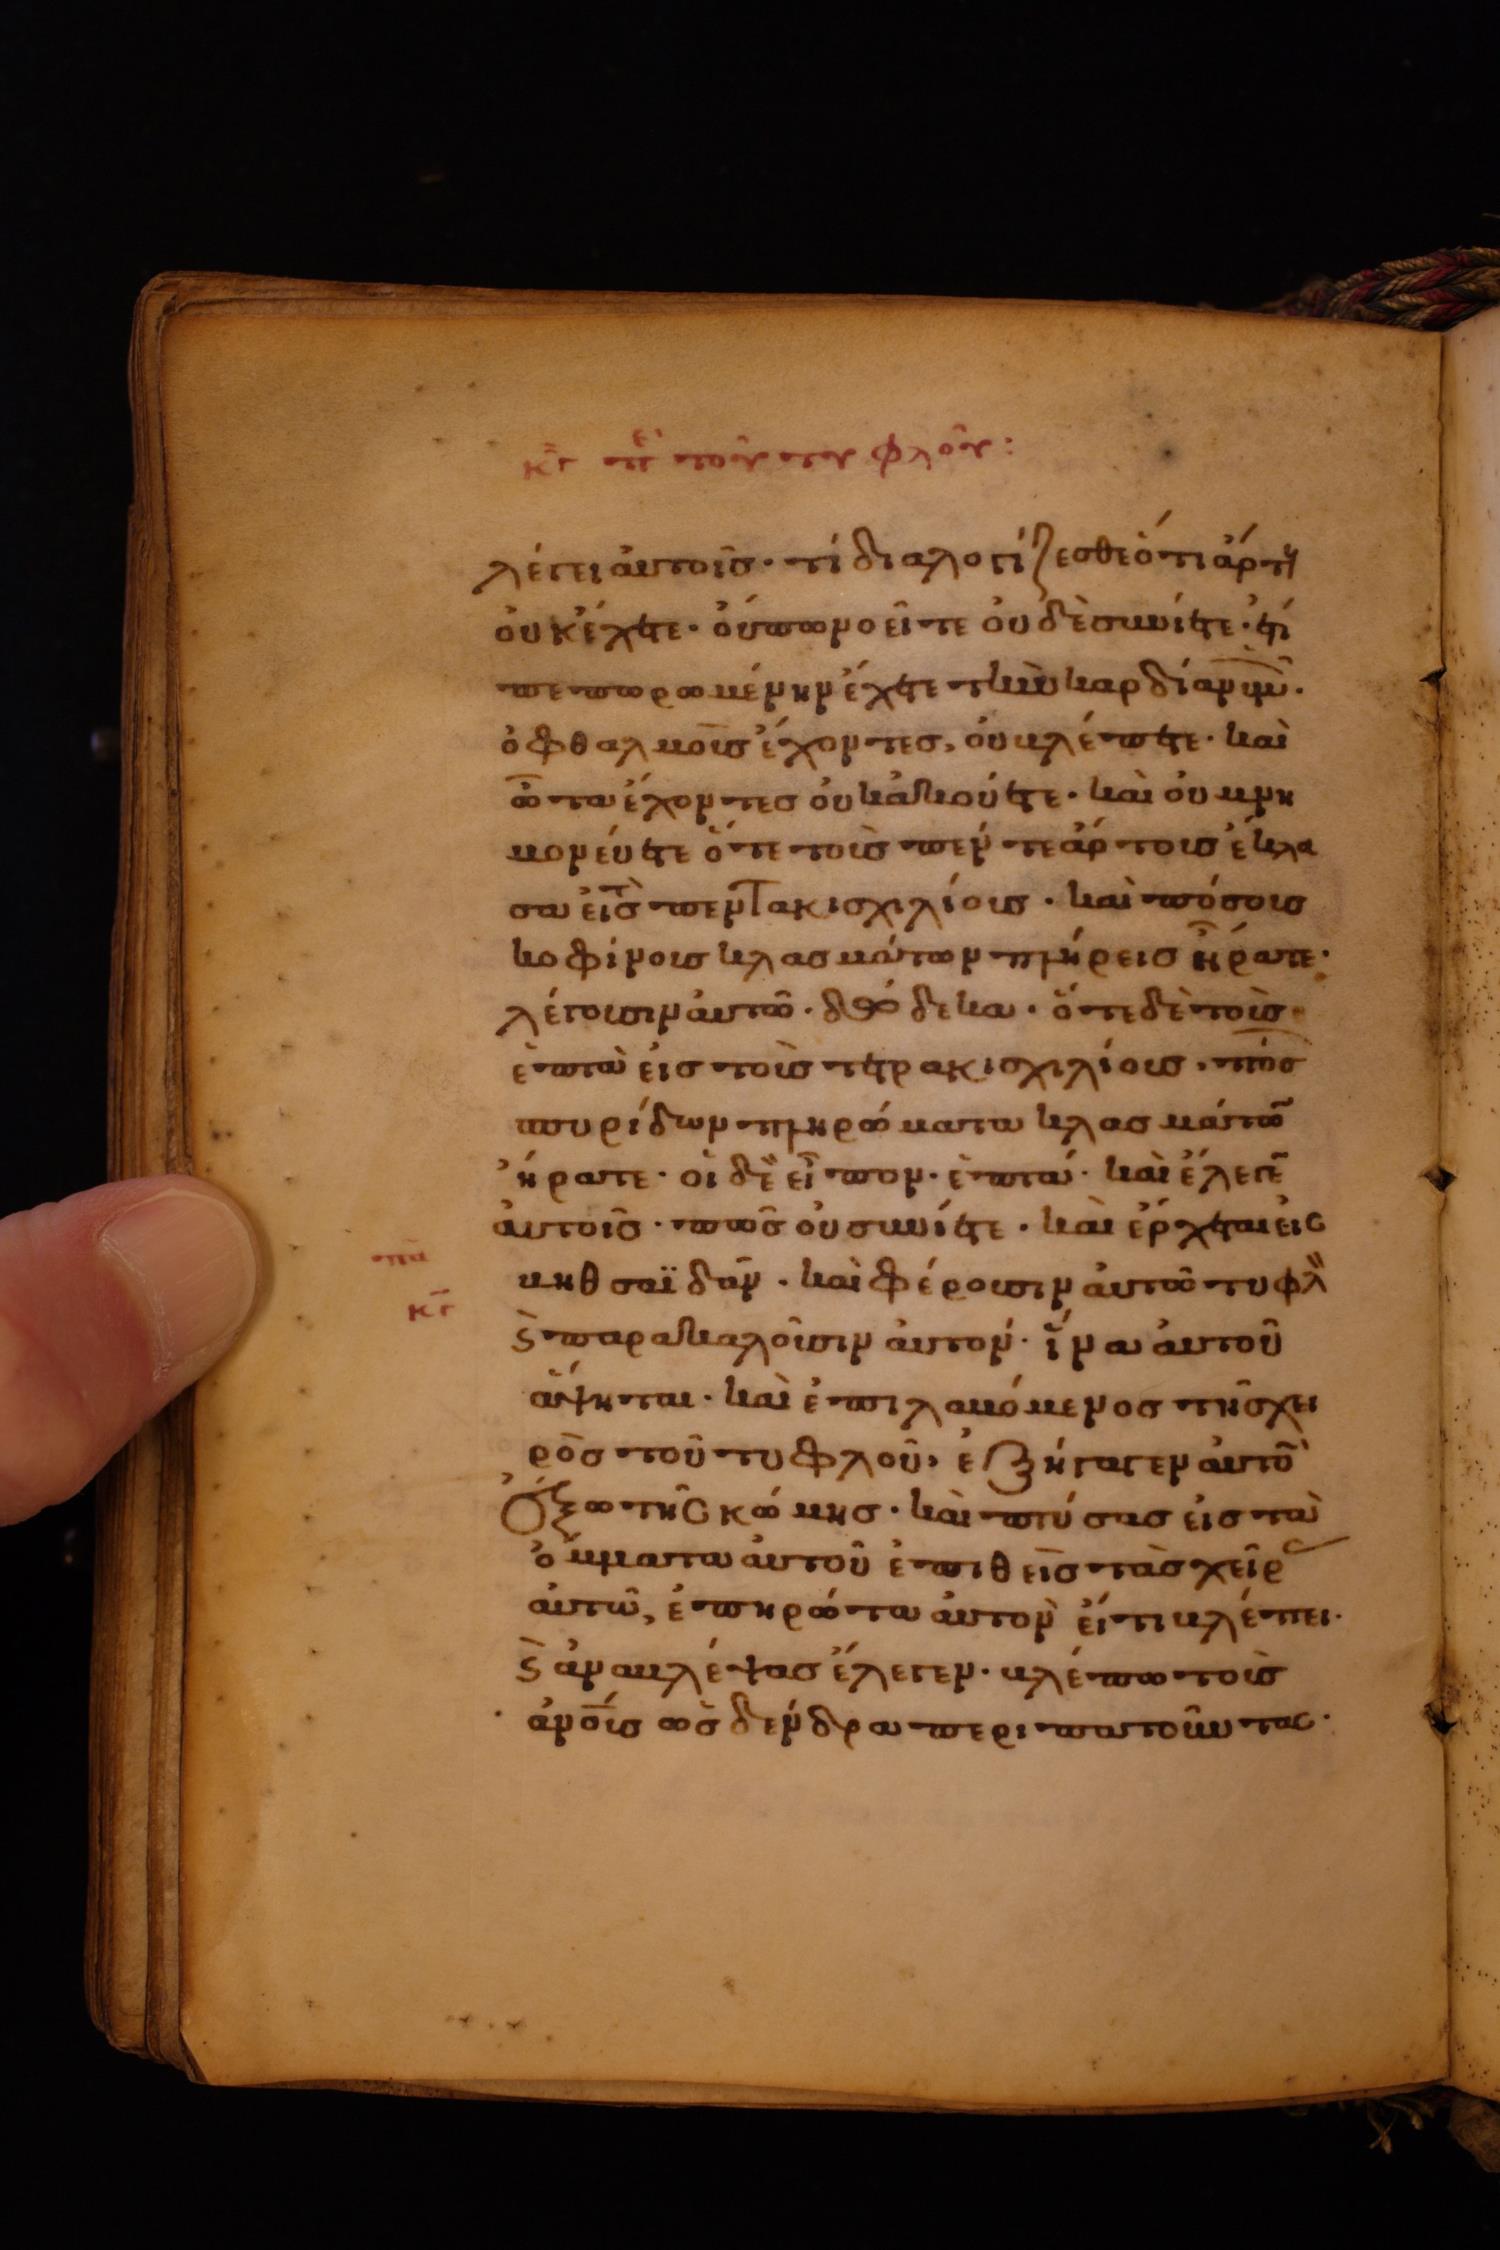 κγ περὶ τοῦ τυφλοῦ:
λέγει αὐτοῖς· τί διαλογίζεσθε ὅτι ἄρτ
οὐκ ἔχετε· οὔπω νοεῖτε οὐδὲ συνίετε· ἔτι
πεπωρωμένην ἔχετε τὴν καρδίαν ὑμῶν·
ὀφθαλμοὺς ἔχοντες, οὐ βλέπετε· καὶ
ὦτα ἔχοντες οὐκ ἀκούετε· καὶ οὐ μνη
μονεύετε ὅτε τοὺς πέντε ἄρτους ἔκλα
σα εἰς τοὺς πεντακισχιλίους· καὶ πόσους
κοφίνους κλασμάτων πλήρεις ἤρατε·
λέγουσιν αὐτῶ· δώδεκα· ὅτε δὲ τοὺς
ἑπτὰ εἰς τοὺς τετρακισχιλίους· πόσ
σπυρίδων πληρώματα κλασμάτων
ἤρατε· οἱ δὲ εἶπον· ἑπτά· καὶ ἔλεγε
αὐτοῖς· πῶς οὐ συνίετε· καὶ ἔρχεται εἰς
βηθσαϊδάν· καὶ φέρουσιν αὐτῶ τυφλ
κγ
ϛ παρακαλοῦσιν αὐτόν· ἵνα αὐτοῦ
ἅψηται· καὶ ἐπιλαβόμενος τῆς χει
ρὸς τοῦ τυφλοῦ, ἐξήγαγεν αὐτὸ
ἔξω τῆς κώμης· καὶ πτύσας εἰς τὰ
ὄμματα αὐτοῦ ἐπιθεὶς τὰς χεῖρας
αὐτῶ, ἐπηρώτα αὐτὸν εἴ τι βλέπει·
ϛ ἀναβλέψας ἔλεγεν· βλέπω τοὺς
ἀνους ὡς δένδρα περιπατοῦντας·